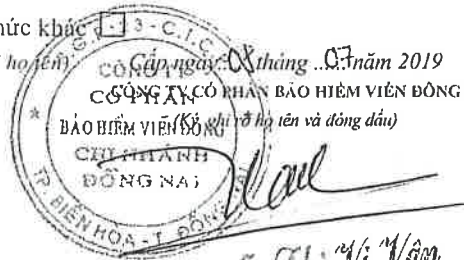 ức khác
họ tên)
Cấp ngày: 08 tháng ...07 năm 2019
CÔNG TY CỔ PHẦN BẢO HIỂM VIỄN ĐÔNG
(Ký, ghi rõ họ tên và đóng dấu)
CÔNG TY
CỔ PHẦN
BẢO HIỂM VIỄN ĐÔNG
CHI NHÁNH
ĐỒNG NAI
TP. BIÊN HÒA - T. ĐỒNG
Vi Vân